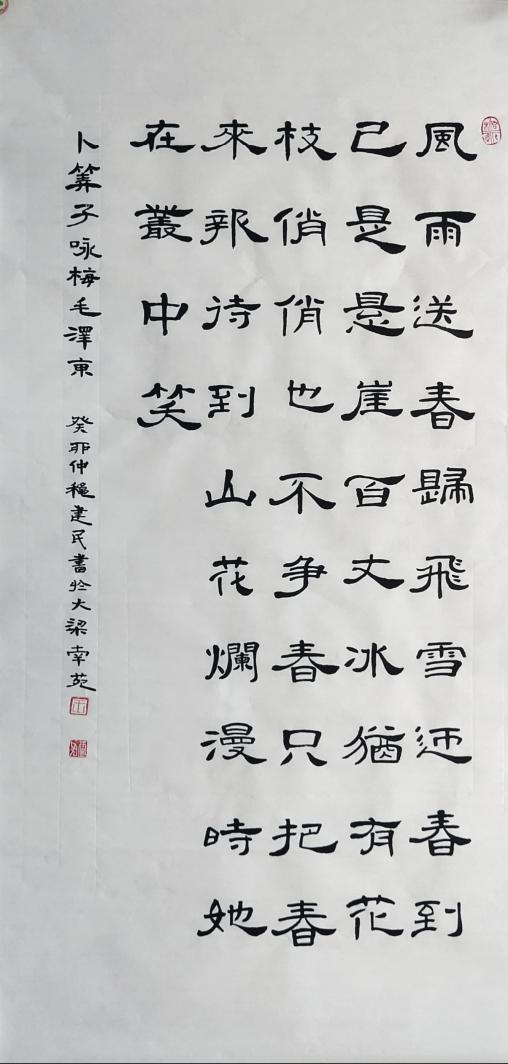 風雨送春歸飛雪迎春到
已是悬崖百丈冰猶有花
枝俏俏也不争春只把春
來報待到山花爛漫時她
在叢中笑
卜筭子咏梅毛澤東 癸卯仲穐建民書於大梁南苑